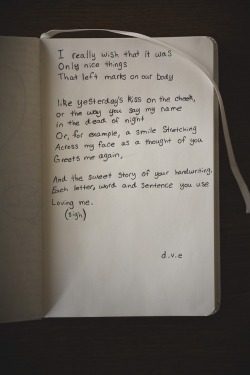 I really wish that it was
Only nice things
That left marks on our body
like yesterday's kiss on the cheek,
or the way you say my name
in the dead of night
Or, for example, a smile stretching
Across my face as a thought of you
Greets me again,
And the sweet story of your handwriting.
Each letter, word and sentence you use
Loving me.
(sigh)
d.v.e